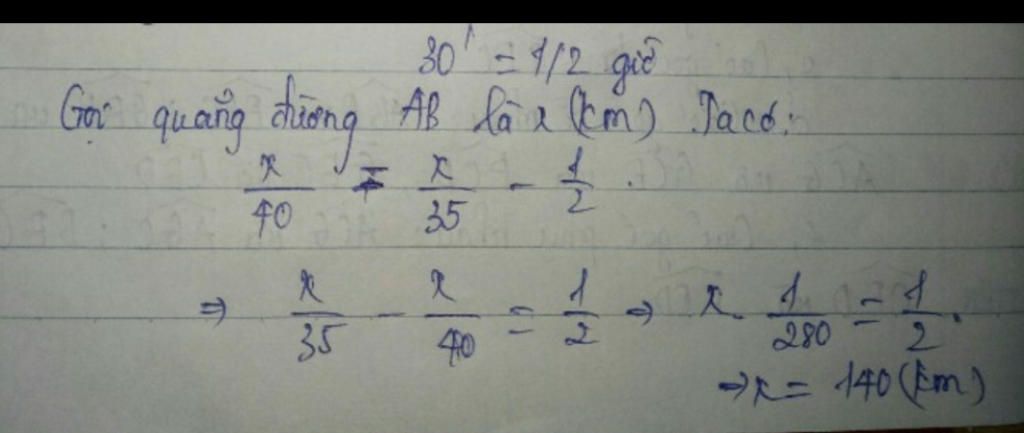 30' = 1/2 giờ
Gọi quãng đường AB là x (km). Ta có:
x/40 = x/35 - 1/2.
⇒ x/35 - x/40 = 1/2 ⇒ x. 1/280 = 1/2.
⇒ x = 140 (km)